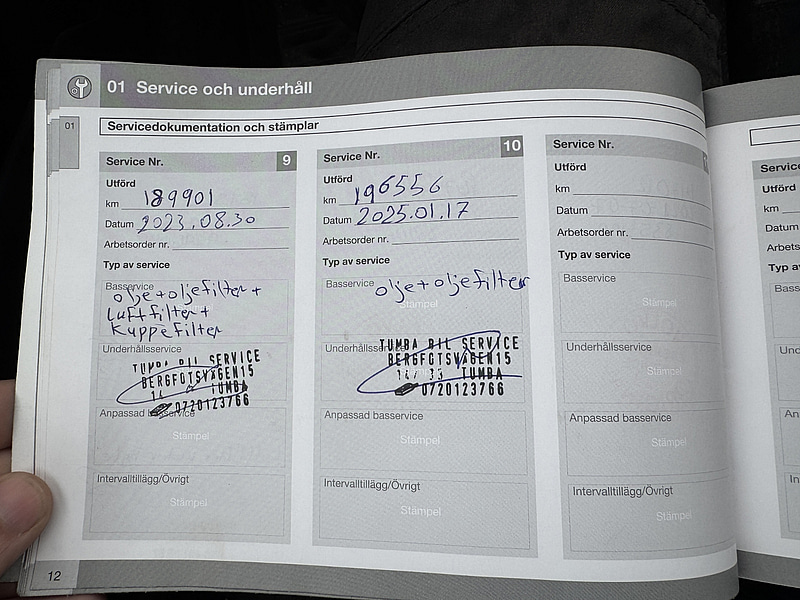 01 Service och underhåll
01
Servicedokumentation och stämplar
Service Nr. 9
Utförd
km 189901
Datum 2023.08.30
Arbetsorder nr.
Typ av service
Basservice
olje+oljefilter +
Luftfilter +
Kuppefilter
Underhållsservice
TUMBA BIL SERVICE
BERGFOTSVÄGEN15
TUMBA
0720123766
Anpassad basservice
Stämpel
Intervalltillägg/Övrigt
Stämpel
Service Nr. 10
Utförd
km 196556
Datum 2025.01.17
Arbetsorder nr.
Typ av service
Basservice
olje+oljefilter
Stämpel
Underhållsservice
TUMBA BIL SERVICE
BERGFOTSVÄGEN15
TUMBA
0720123766
Anpassad basservice
Stämpel
Intervalltillägg/Övrigt
Stämpel
Service Nr.
Utförd
km
Datum
Arbetsorder nr.
Typ av service
Basservice
Stämpel
Underhållsservice
Stämpel
Anpassad basservice
Stämpel
Intervalltillägg/Övrigt
Stämpel
Service
Utförd
km
Datum
Typ av
12